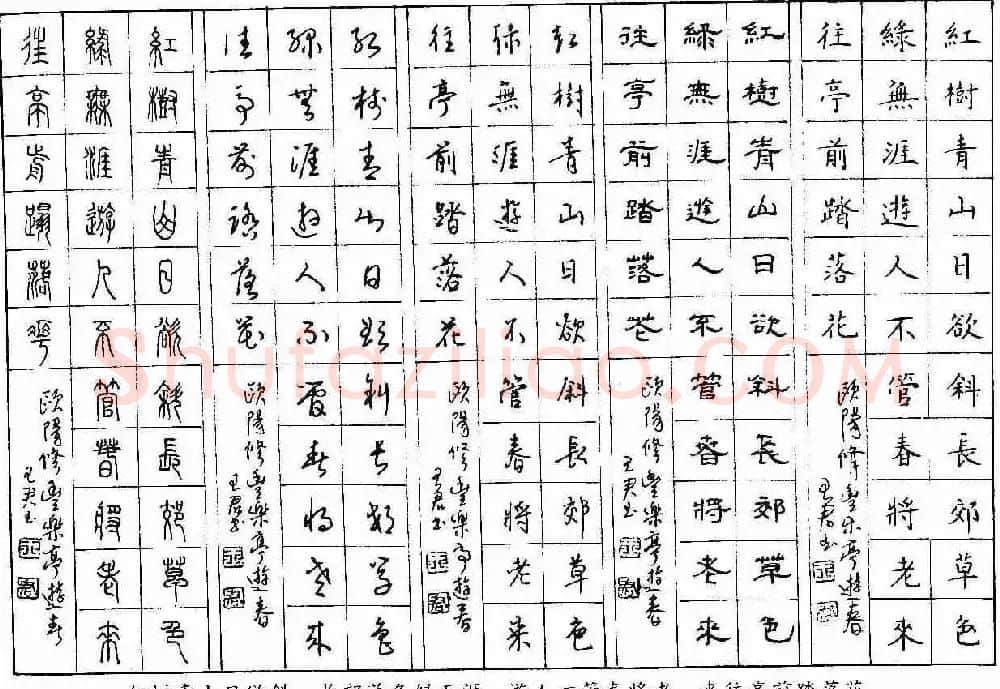 紅樹青山日欲斜長郊草色
綠無涯遊人不管春將老來
往亭前踏落花
歐陽修豐樂亭遊春
紅樹青山日欲斜長郊草色
綠無涯遊人不管春將老來
往亭前踏落花
歐陽修豐樂亭遊春
紅樹青山日欲斜長郊草色
綠無涯遊人不管春將老來
往亭前踏落花
歐陽修豐樂亭遊春
紅樹青山日欲斜長郊草色
綠無涯遊人不管春將老來
往亭前踏落花
歐陽修豐樂亭遊春
紅樹青山日欲斜長郊草色
綠無涯遊人不管春將老來
往亭前踏落花
歐陽修豐樂亭遊春
Shufaziliao.COM